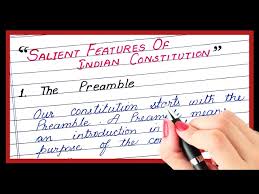 “SALIENT FEATURES OF
INDIAN CONSTITUTION”
1. The Preamble
Our constitution starts with the
Preamble. A Preamb
an introduction in
purpose of the co